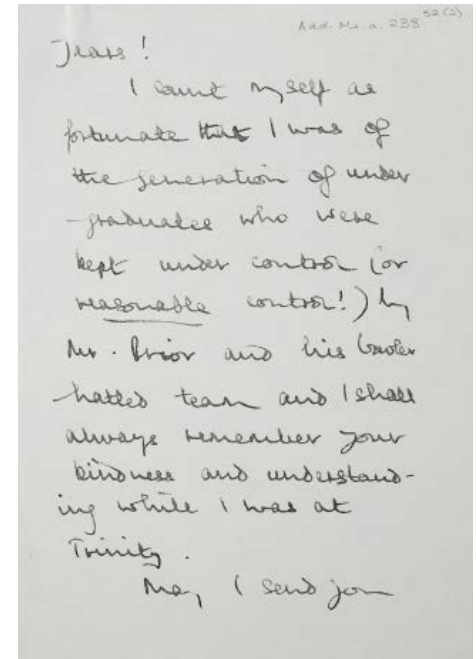 Add. Ms. a. 238 52(2)
years!
I count myself as
fortunate that I was of
the generation of under
-graduates who were
kept under control (or
reasonable control!) by
Mr. Prior and his bowler
-hatted team and I shall
always remember your
kindness and understand-
ing while I was at
Trinity.
May I send you